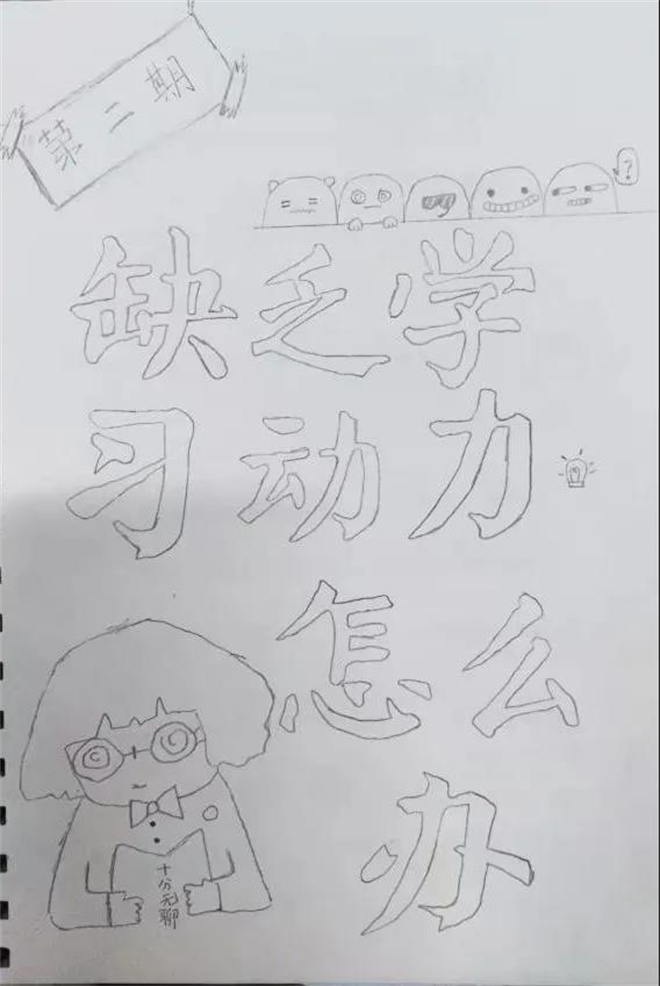 第二期
?
缺乏学
习动力
怎么
办
十分无聊